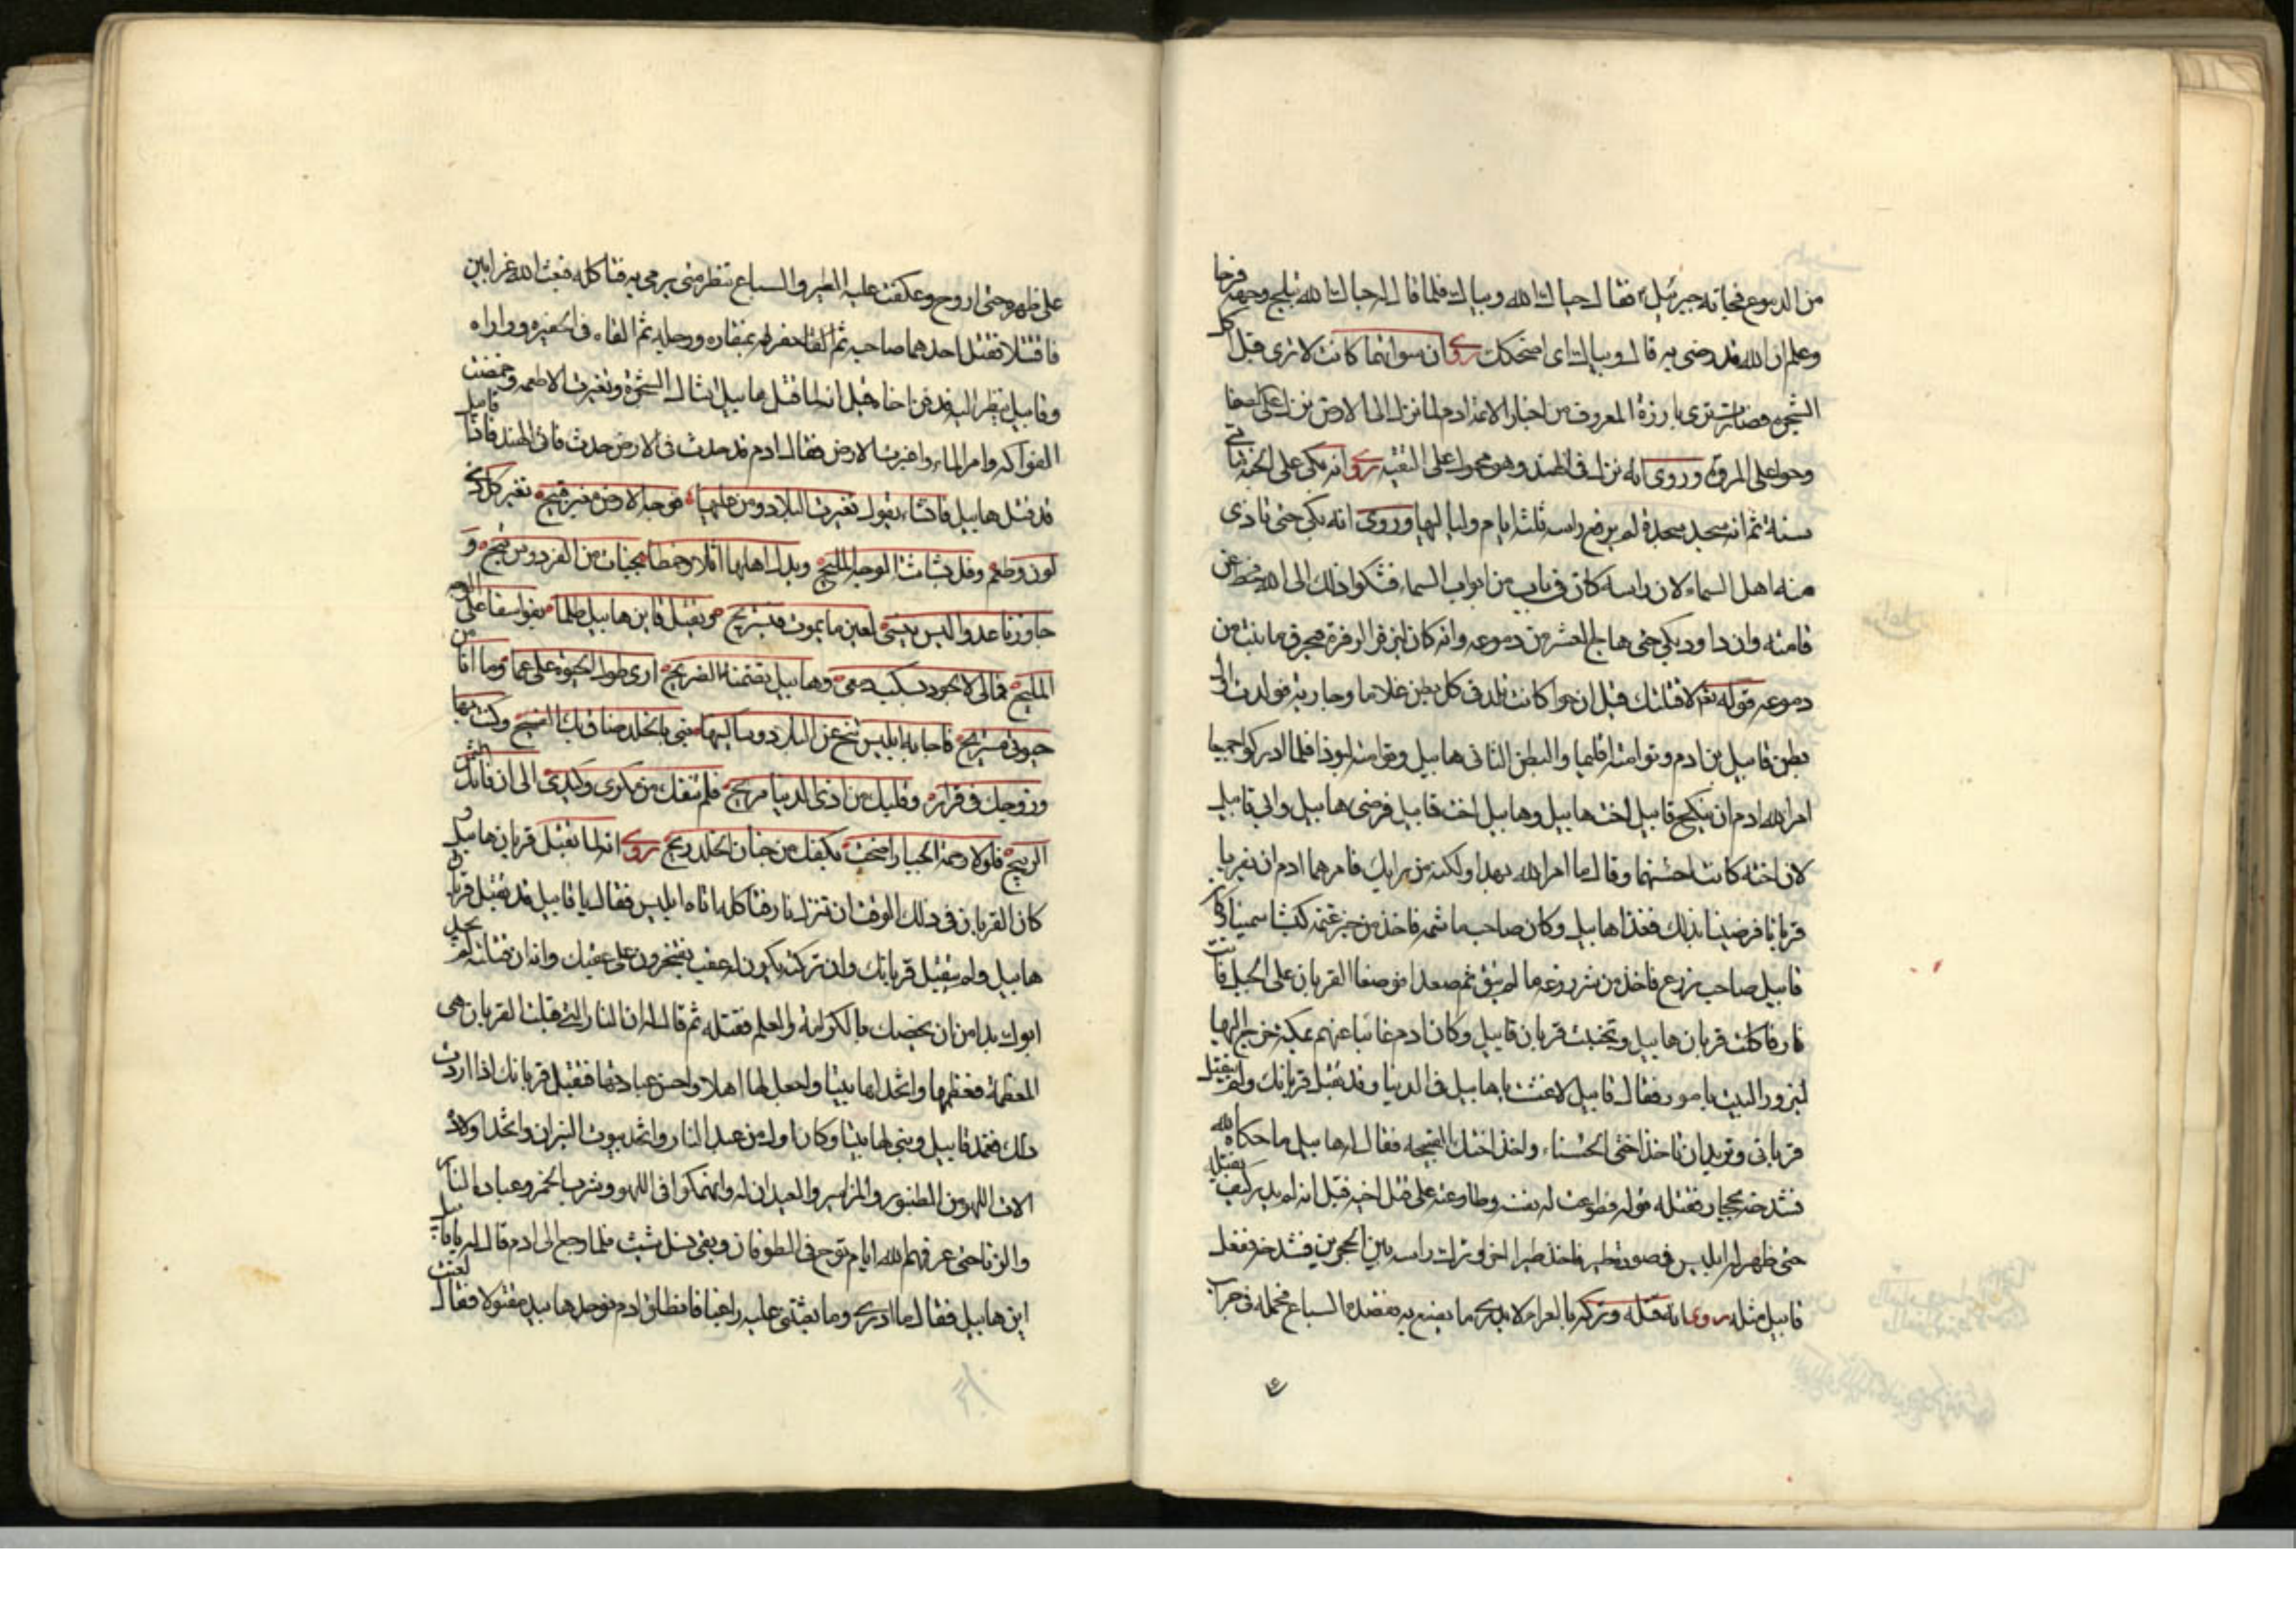 من الدموع فجاءه جبرئيل فقال حياك الله وبياك فلما قال حياك الله تبلج وجهه فرحا
وعلم ان الله قد رضى به قال وبياك اى اضحكك روى ان سواتهما كانت لا ترى قبل اكل
الشجرة فصارت ترى بارزة المعروف من اخبار الائمة ادم لما نزل الى الارض نزل على الصفا
وحوا على المروة وروى انه نزل فى الهند وهو محمول على التقية روى انه بكى على الجنة مأتى
سنة ثم انه سجد سجدة لم يرفع راسه ثلثة ايام ولياليها وروى انه بكى حتى تاذى
منه اهل السماء لان راسه كان فى باب من ابواب السماء فشكوا ذلك الى الله فحط من
قامته وان داود بكى حتى هاج العشب من دموعه وانه كان ليزفر الزفرة فيحرق ما نبت من
دموعه قوله تعم لاقتلنك قيل ان حوا كانت تلد فى كل بطن غلاما وجارية فولدت اول
بطن قابيل بن ادم وتوامته اقليما والبطن الثانى هابيل وتوامته ليوذا فلما ادركوا جميعا
امر الله ادم ان ينكح قابيل اخت هابيل وهابيل اخت قابيل فرضى هابيل وابى قابيل
لان اخته كانت احسنهما وقال ما امر الله بهذا ولكنه من رايك فامرهما ادم ان يقربا
قربانا فرضيا بذلك فغدا هابيل وكان صاحب ماشية فاخذ من خير غنمه كبشا سمينا وكان
قابيل صاحب زرع فاخذ من شر زرعه ما لم ينق ثم صعدا فوضعا القربان على الجبل فاتت
نار فاكلت قربان هابيل وتجنبت قربان قابيل وكان ادم غائبا عنهم بمكة خرج اليها
ليزور البيت بامر ربه فقال قابيل لا عشت يا هابيل فى الدنيا وقد تقبل قربانك ولم يتقبل
قربانى وتريد ان تاخذ اختى الحسناء واخذ اختك القبيحة فقال له هابيل ما حكاه الله
فشدخه بحجارة فقتله قوله فطوعت له نفسه وطاوعته على قتل اخيه قيل انه لم يدر كيف يقتله
حتى ظهر له ابليس فى صورة طير فاخذ طيرا اخر وترك راسه بين الحجرين فشدخه ففعل
قابيل مثله روى انه قتله وتركه بالعراء لا يدرى ما يصنع به فقصده السباع فحمله فى جراب
على ظهره حتى اروح وعكفت عليه الطير والسباع تنظر متى يرمى به فتاكله فبعث الله غرابين
فاقتتلا فقتل احدهما صاحبه ثم حفر له بمنقاره ورجليه ثم القاه فى الحفيرة وواراه
وقابيل ينظر اليه فدفن اخاه قيل انه لما قتل هابيل شاك الشجرة وتغيرت الاطعمة وحمضت
الفواكه وامر الماء واغبرت الارض فقال ادم قد حدث فى الارض حدث فاتى الهند فاذا قابيل
قد قتل هابيل فانشاء يقول تغيرت البلاد ومن عليها فوجه الارض مغبر قبيح تغير كل ذى
لون وطعم وقل بشاشة الوجه المليح وبدل اهلها اثلا وخمطا بجنات من الفردوس فيح و
جاورنا عدو اليس ينسى لعين ما يموت فنستريح ويقتل قاين هابيل ظلما فوا سفا على الوجه
المليح فمالى لا اجود بسكب دمعى وهابيل تضمنه الضريح ارى طول الحيوة على غما وما انا من
حيوتى مستريح فاجابه ابليس تنح عن البلاد وساكنيها فبى بالخلد ضاق بك الفسيح وكنت بها
وزوجك فى قرار وقلبك من اذى الدنيا مريح فلم تنفك من مكرى وكيدى الى ان فاتك الثمن
الربيح فلولا رحمة الجبار اضحت بكفك من جنان الخلد ريح روى انه لما تقبل قربان هابيل و
كان القربان فى ذلك الوقت ان تنزل نار فتاكله اتاه ابليس فقال يا قابيل قد تقبل قربان
هابيل ولم يتقبل قربانك وان تركته يكون له عقب يفتخرون على عقبك وانه ان قتلته لم يجد
ابوك بدا من ان يخصك بالكرامة والعلم فقتله ثم قال له ان النار التى قبلت القربان هى
المعظمة فعظمها واتخذ لها بيتا واجعل لها اهلا واحسن عبادتها فتقبل قربانك اذا اردت
ذلك فعمد قابيل وبنى لها بيتا وكان اول من عبد النار واتخذ بيوت النيران واتخذ اولاده
الات اللهو من الطنبور والمزامير والعيدان وانهمكوا فى اللهو وشرب الخمر وعبادة النار
والزنا حتى غرقهم الله ايام نوح فى الطوفان وبقى نسل شيث فلما رجع الى ادم قال له يا قابيل
اين هابيل فقال ما ادرى وما بعثتنى عليه راعيا فانطلق ادم فوجد هابيل مقتولا فقال لعنت